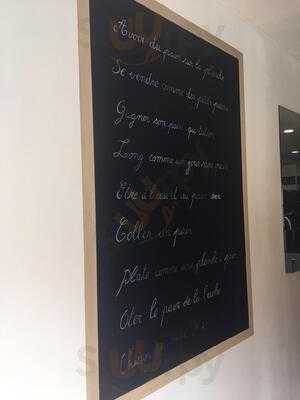 Avoir du pain sur la planche
Se vendre comme des petits pains
Gagner son pain quotidien
Long comme un jour sans pain
Etre à l'eau et au pain sec
Coller un pain
Oter le pain de la bouche